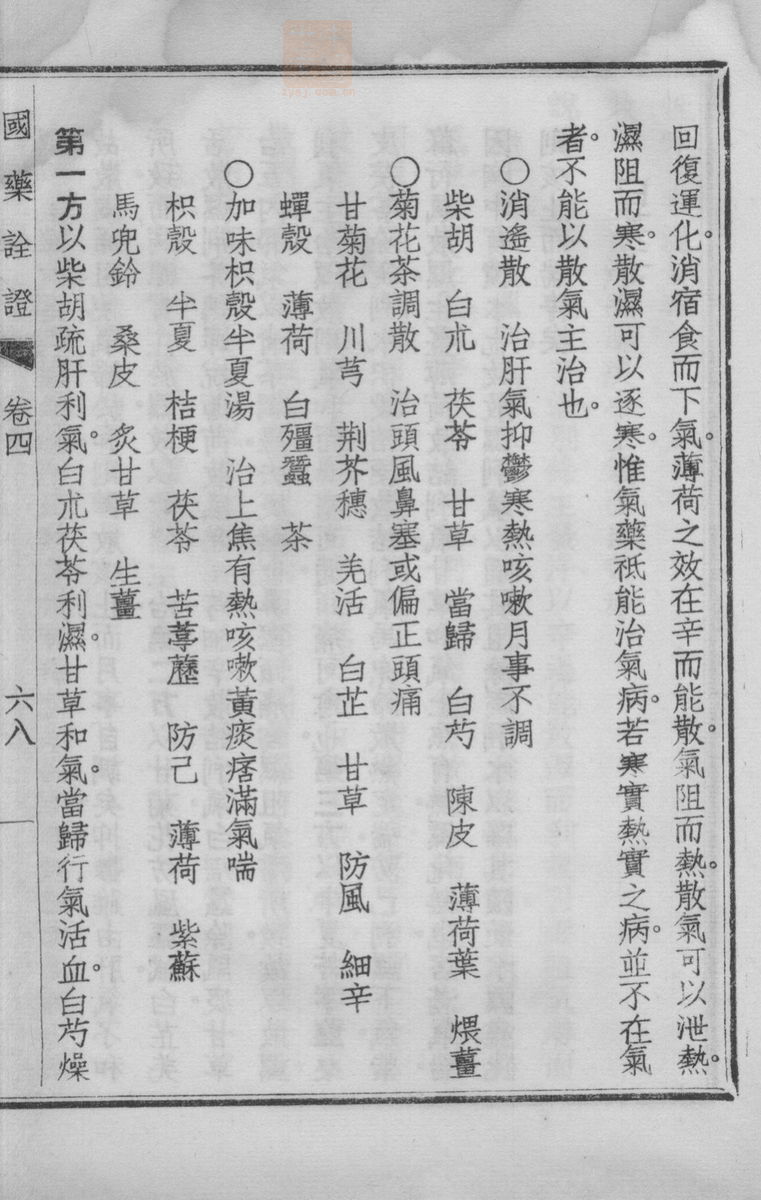 回復運化。消宿食而下氣。薄荷之效在辛而能散。氣阻而熱。散氣可以泄熱。
濕阻而寒。散濕可以逐寒。惟氣藥祇能治氣病。若寒實熱實之病。並不在氣
者。不能以散氣主治也。
○消遙散　治肝氣抑鬱寒熱咳嗽月事不調
柴胡　白朮　茯苓　甘草　當歸　白芍　陳皮　薄荷葉　煨薑
○菊花茶調散　治頭風鼻塞或偏正頭痛
甘菊花　川芎　荆芥穗　羌活　白芷　甘草　防風　細辛
蟬殼　薄荷　白殭蠶　茶
○加味枳殼半夏湯　治上焦有熱咳嗽黃痰痞滿氣喘
枳殼　半夏　桔梗　茯苓　苦葶藶　防己　薄荷　紫蘇
馬兜鈴　桑皮　炙甘草　生薑
第一方以柴胡疏肝利氣。白朮茯苓利濕。甘草和氣。當歸行氣活血。白芍燥
國藥詮證　卷四　六八